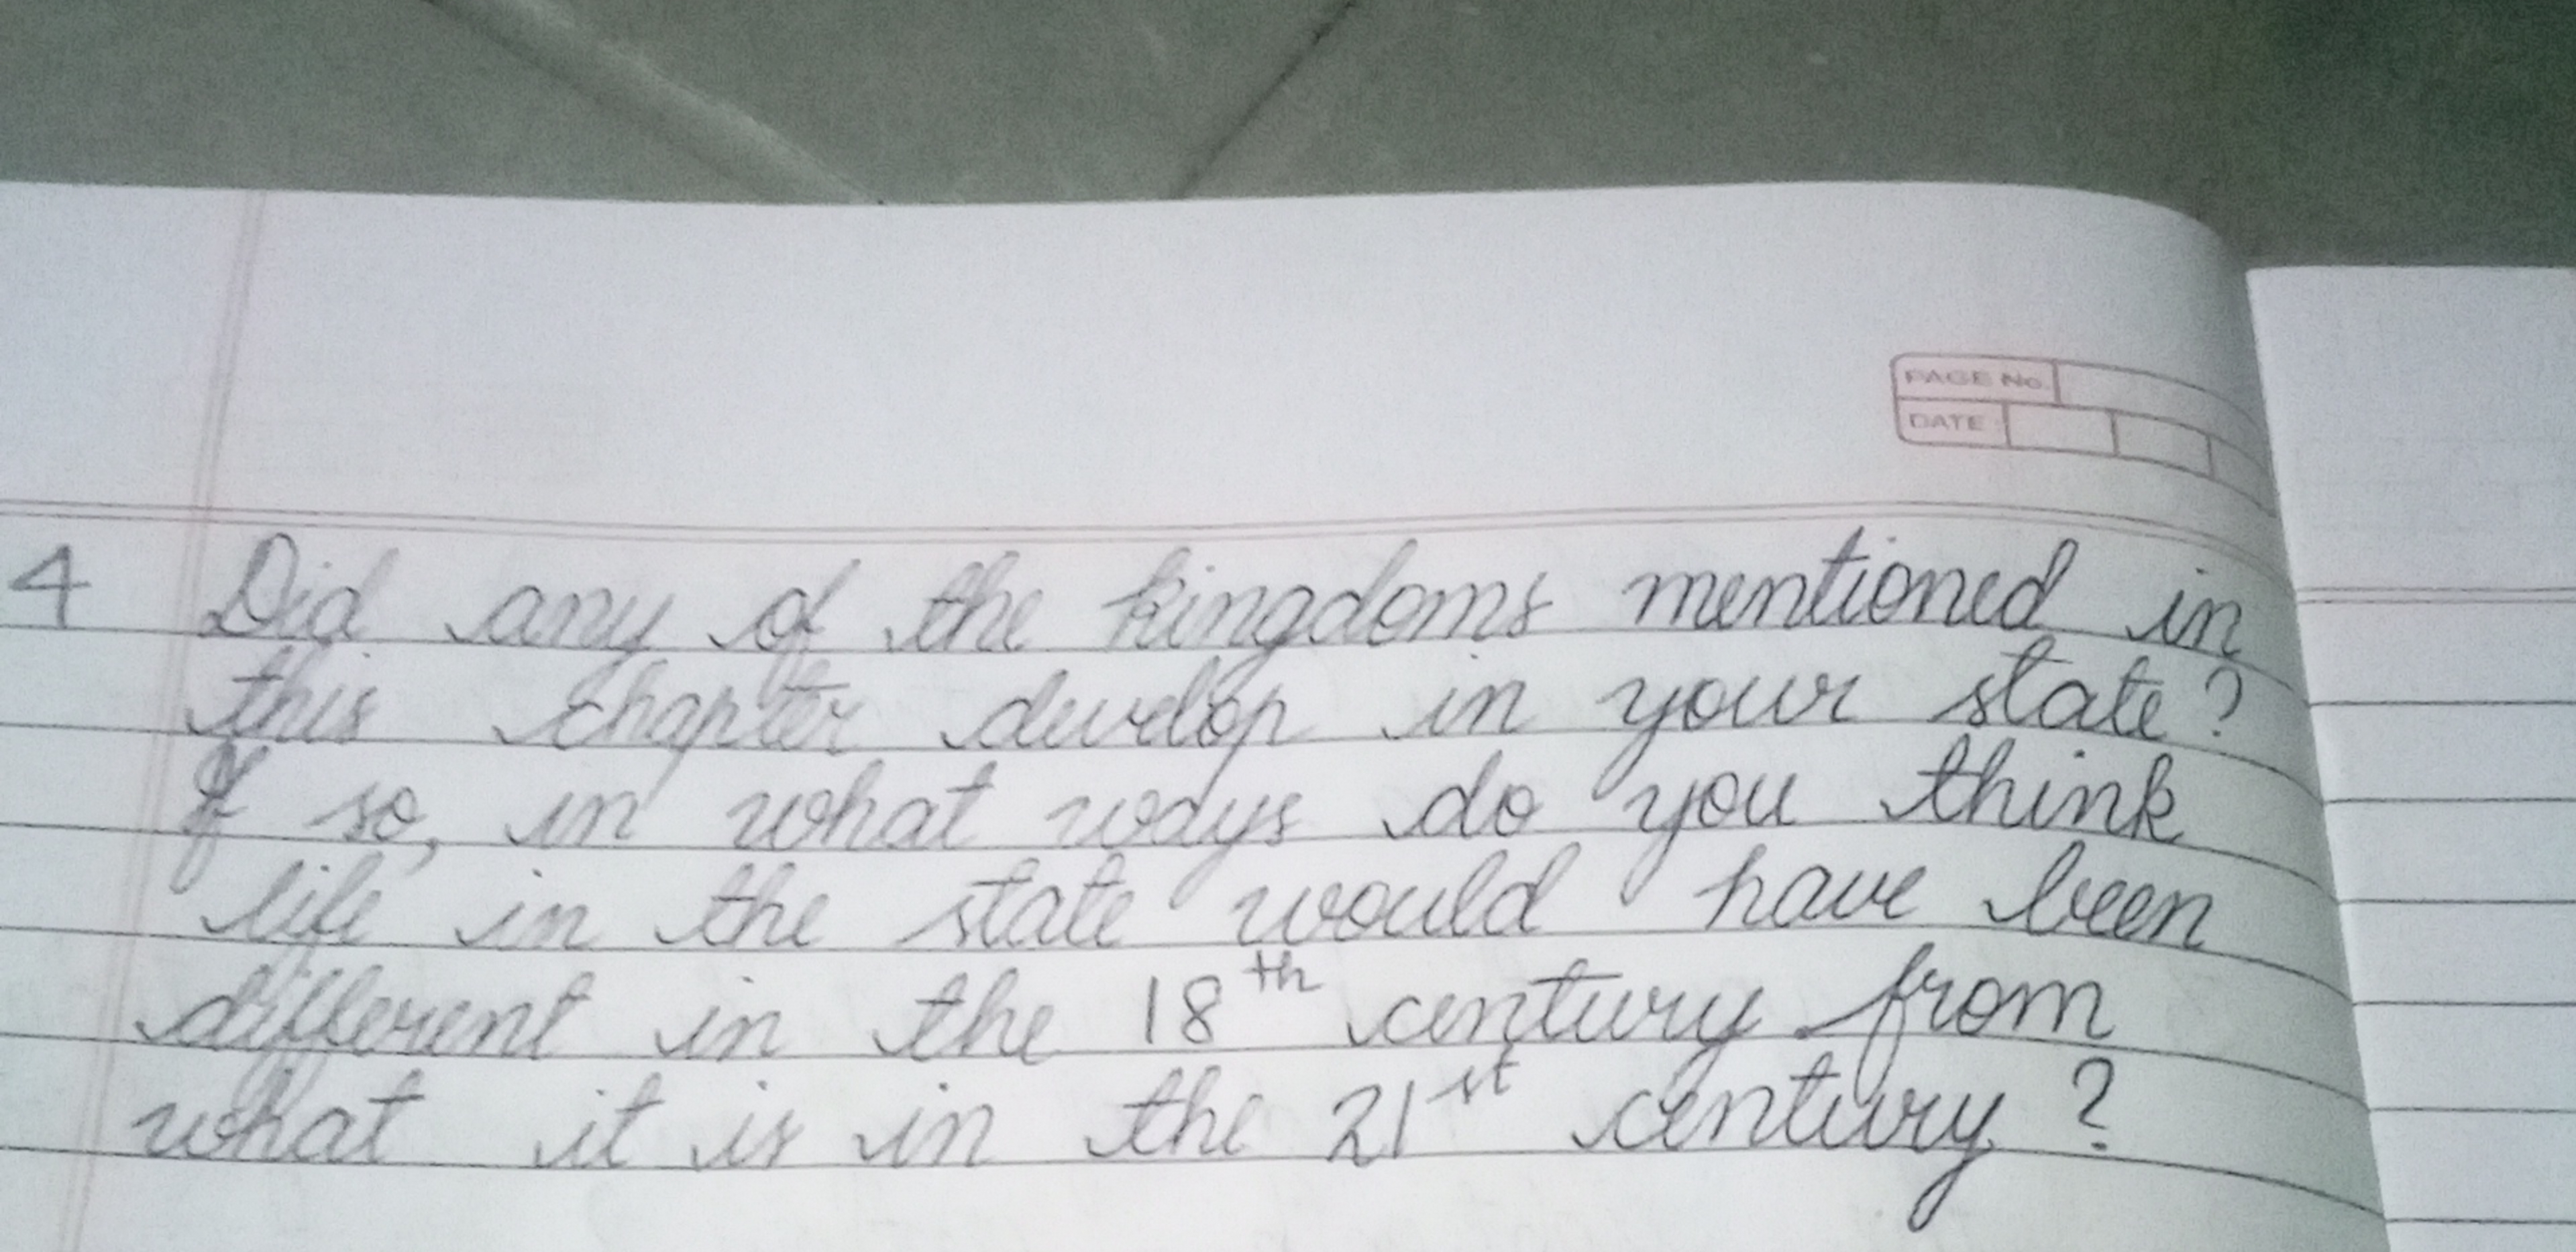 PAGE No.
DATE
4 Did any of the kingdoms mentioned in
this chapter develop in your state?
If so, in what ways do you think
life in the state would have been
different in the 18th century from
what it is in the 21st century?